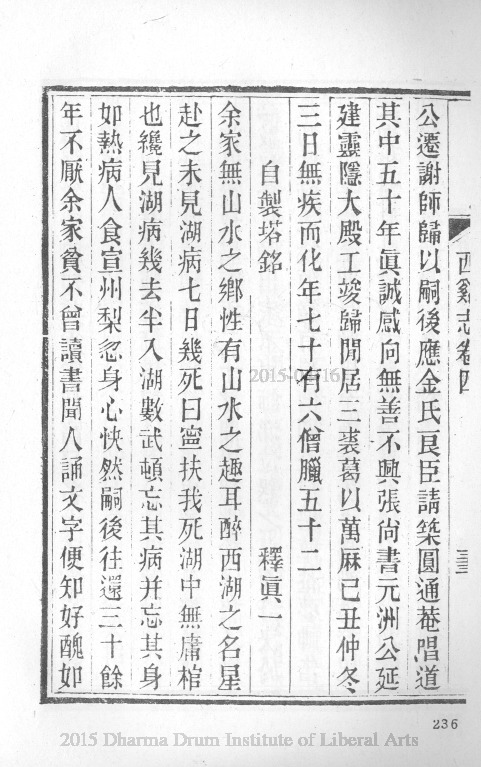 西谿志卷四
三
公遷謝師歸以嗣後應金氏良臣請築圓通菴唱道
其中五十年眞誠感向無善不興張尙書元洲公延
建靈隱大殿工竣歸閒居三裘葛以萬厤己丑仲冬
三日無疾而化年七十有六僧臘五十二
自製塔銘 釋眞一
余家無山水之鄕性有山水之趣耳醉西湖之名星
赴之未見湖病七日幾死曰寍扶我死湖中無庸棺
也纔見湖病幾去半入湖數武頓忘其病并忘其身
如熱病人食宣州梨忽身心快然嗣後往還三十餘
年不厭余家貧不曾讀書聞人誦文字便知好醜如
2015
236
2015 Dharma Drum Institute of Liberal Arts